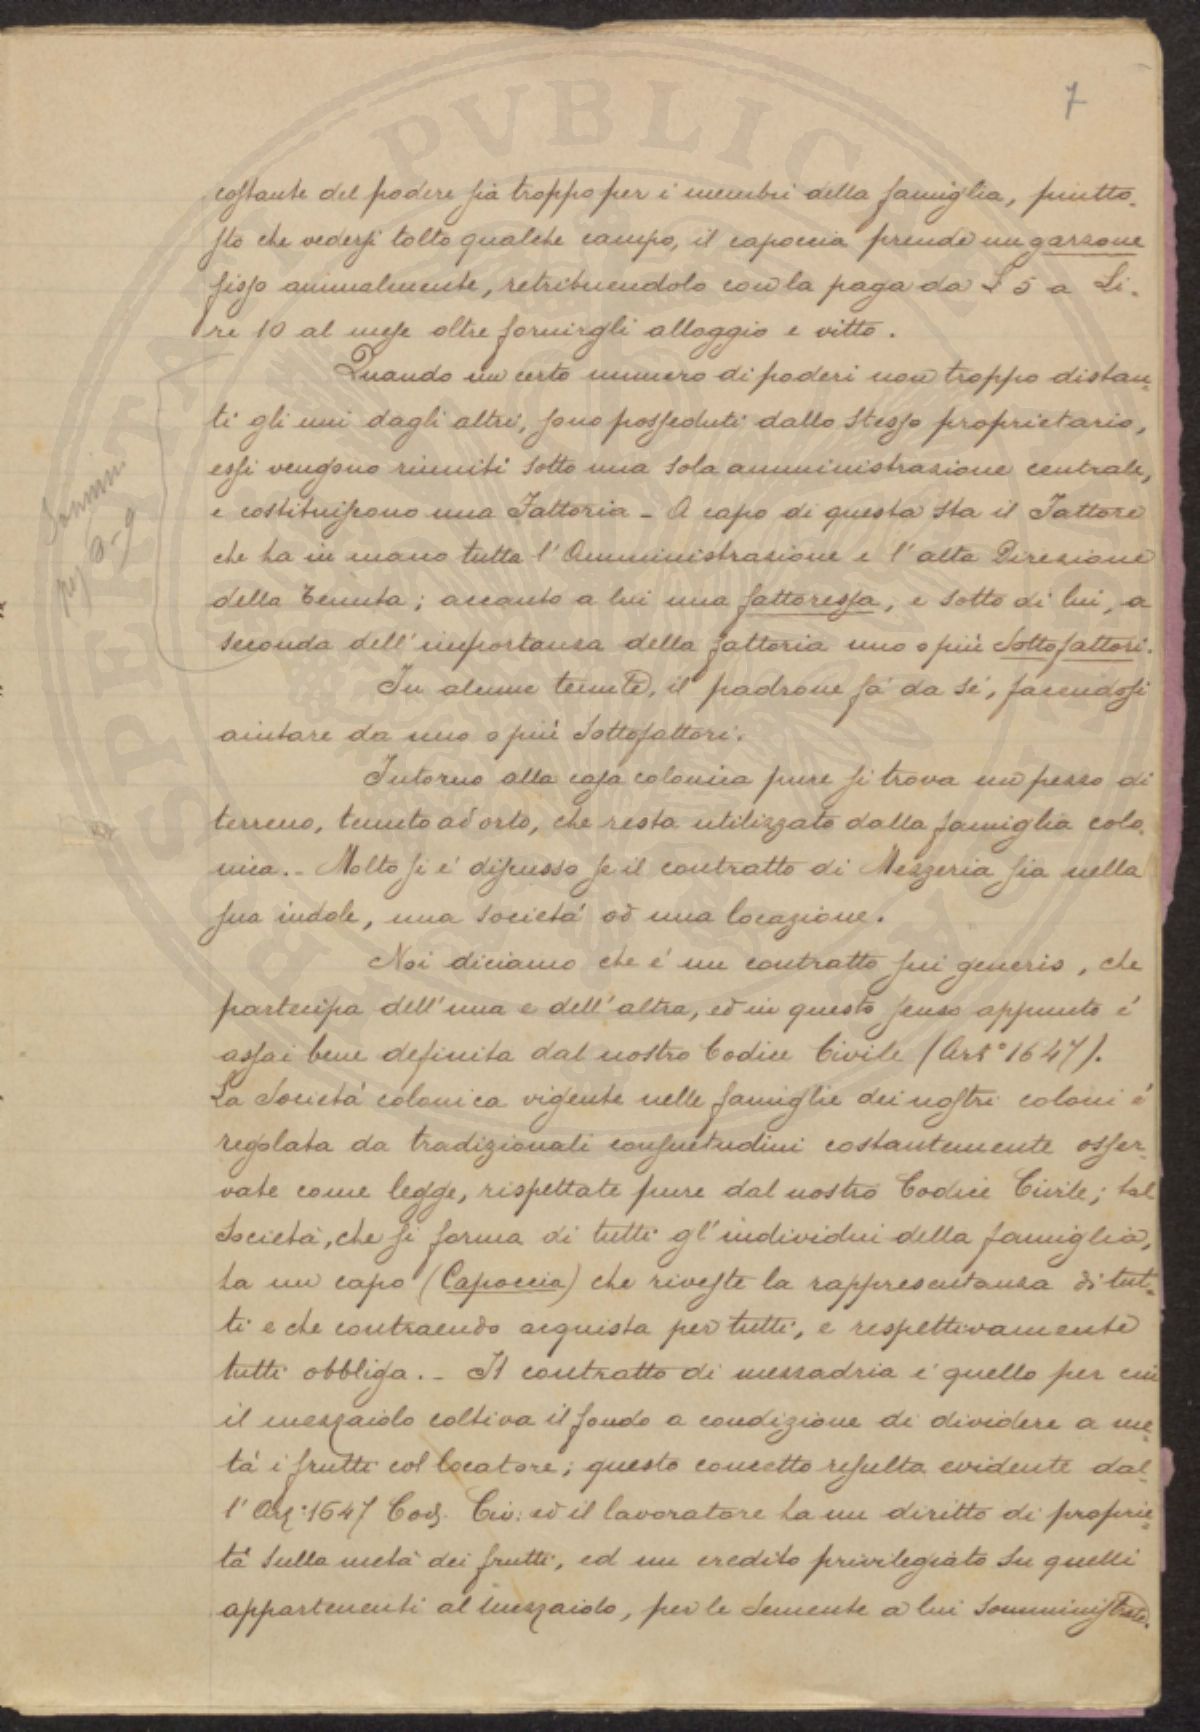 7
costante del podere sia troppo per i membri della famiglia, piutto-
sto che vedersi tolto qualche campo, il capoccia prende un garzone
fisso annualmente, retribuendolo con la paga da L 5 a Li-
re 10 al mese oltre fornirgli alloggio e vitto.
Quando un certo numero di poderi non troppo distan-
ti gli uni dagli altri, sono posseduti dallo stesso proprietario,
essi vengono riuniti sotto una sola amministrazione centrale,
e costituiscono una Fattoria - A capo di questa sta il Fattore
che ha in mano tutta l'Amministrazione e l'alta Direzione
della Tenuta; accanto a lui una fattoressa, e sotto di lui, a
seconda dell'importanza della fattoria uno o più Sottofattori.
In alcune tenute, il padrone fà da sé, facendosi
aiutare da uno o più Sottofattori.
Intorno alla casa colonica pure si trova un pezzo di
terreno, tenuto ad orto, che resta utilizzato dalla famiglia colo-
nica. - Molto si é discusso se il contratto di Mezzeria sia nella
sua indole, una società od una locazione.
Noi diciamo che é un contratto sui generis, che
partecipa dell'una e dell'altra, ed in questo senso appunto é
assai bene definita dal nostro Codice Civile (Art° 1647).
La Società colonica vigente nelle famiglie dei nostri coloni é
regolata da tradizionali consuetudini costantemente osser-
vate come legge, rispettate pure dal nostro Codice Civile; tal
Società, che si forma di tutti gl'individui della famiglia,
ha un capo (Capoccia) che riveste la rappresentanza di tut-
ti e che contraendo acquista per tutti, e respettivamente
tutti obbliga. - Il contratto di mezzadria é quello per cui
il mezzaiolo coltiva il fondo a condizione di dividere a me-
tà i frutti col locatore; questo concetto resulta evidente dal-
l'Art: 1647 Cod. Civ: ed il lavoratore ha un diritto di proprie-
tà sulla metà dei frutti, ed un credito privilegiato su quelli
appartenenti al mezzaiolo, per le semente a lui somministrate.